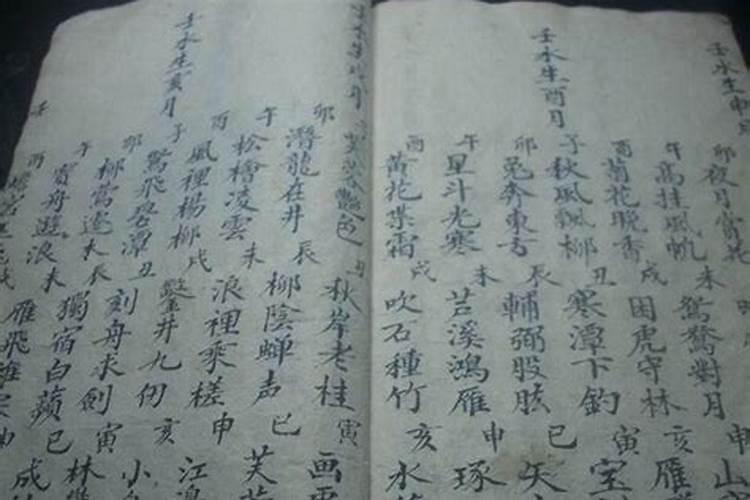 壬水生申月
卯 夜月賞花
午 高挂風帆 未 鴛鴦對月 申 山
酉 菊花晚香 戌 困虎守林 亥 雁
壬水生酉月
子 秋風飄柳 丑 寒潭下釣 寅 宝
卯 兎奔東方 辰 輔弼股肱 巳 矢
午 星斗光寒 未 苕溪鴻雁 申 琢
酉 黄花葉霜 戌 吹石種竹 亥 水
艷色 丑 秋岸老桂 寅 画
卯 潛龍在井 辰 柳陰蟬声 巳 芙
午 松檜凌雲 未 浪裡乘槎 申 江
酉 風裡楊柳 戌 鑿井九仞 亥 小
壬水生亥月
子 鶩飛碧潭 丑 刻舟求劍 寅 林
卯 柳鶯遷 辰 獨宿白蘋 巳 成
午 寶舟遊浪 未 雁飛 申
酉
壬